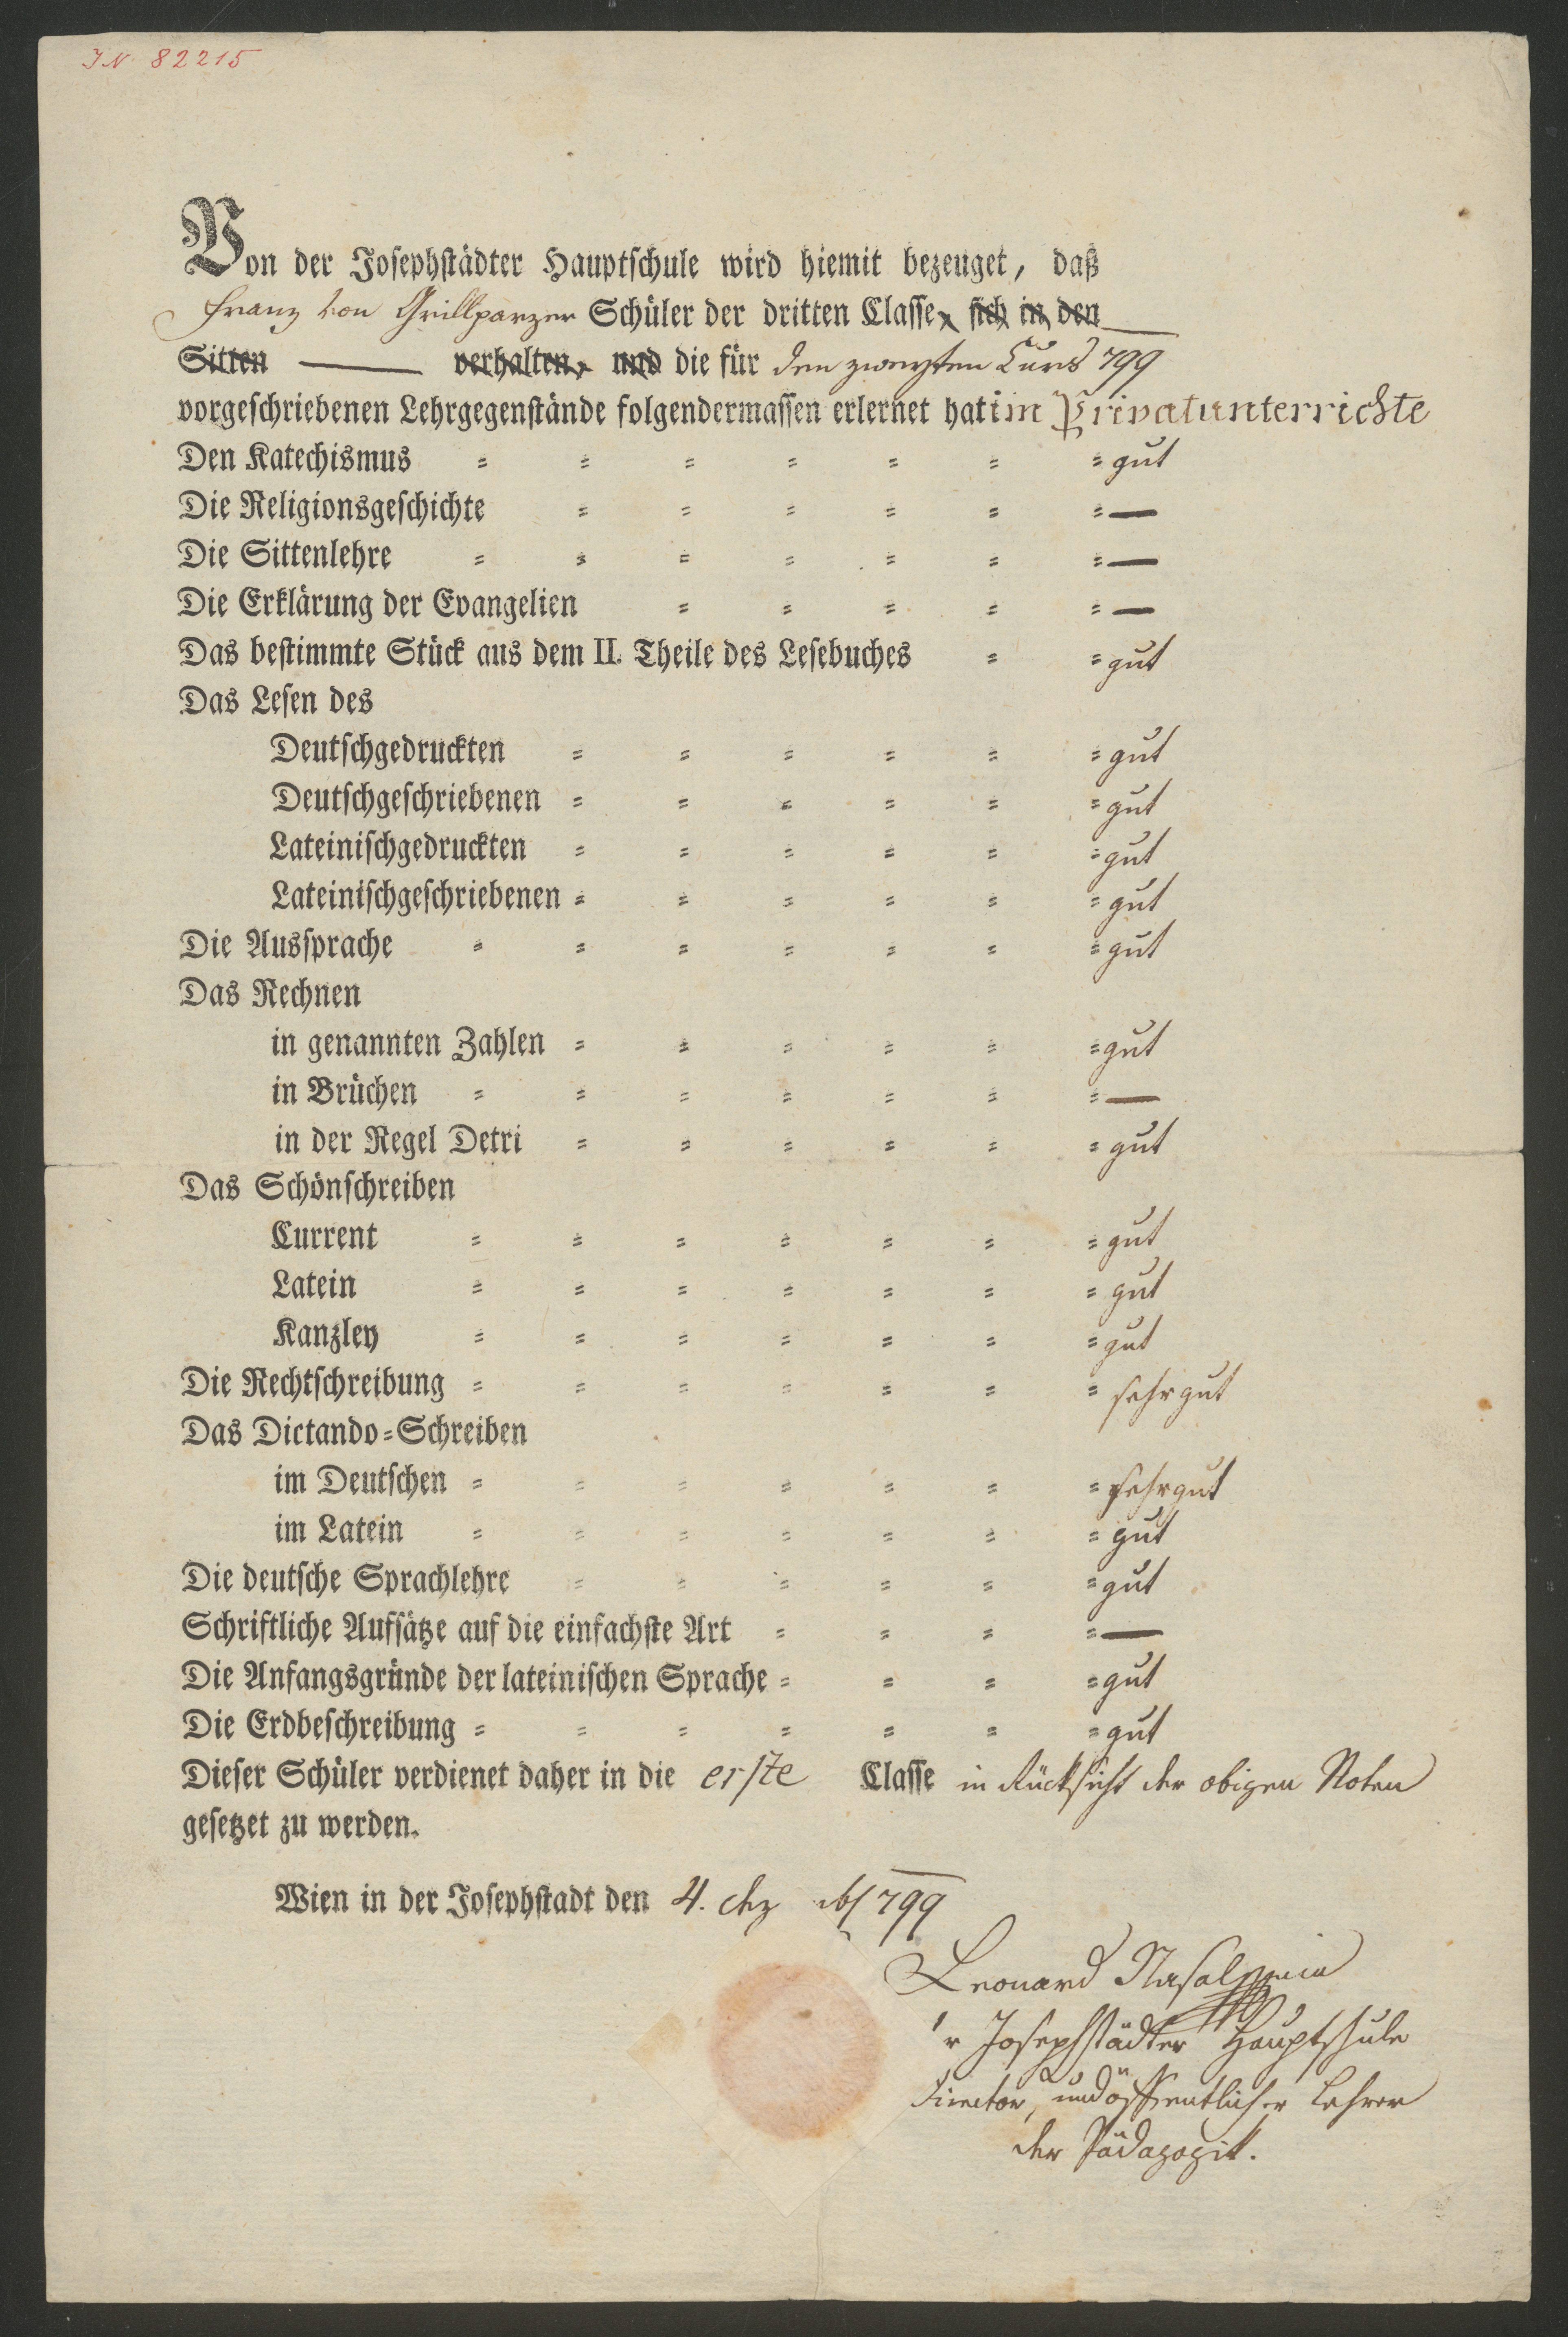 IN 82215
Von der Josephstädter Hauptschule wird hiemit bezeuget, daß
Franz von Grillparzer Schüler der dritten Classe, sich in den
Sitten — verhalten, und die für den zweyten Curs 799
vorgeschriebenen Lehrgegenstände folgendermassen erlernet hat im Privatunterrichte
Den Katechismus = = = = = = = gut
Die Religionsgeschichte = = = = = = —
Die Sittenlehre = = = = = = = —
Die Erklärung der Evangelien = = = = = —
Das bestimmte Stück aus dem II. Theile des Lesebuches = = gut
Das Lesen des
Deutschgedruckten = = = = = = gut
Deutschgeschriebenen = = = = = = gut
Lateinischgedruckten = = = = = = gut
Lateinischgeschriebenen = = = = = = gut
Die Aussprache = = = = = = = gut
Das Rechnen
in genannten Zahlen = = = = = = gut
in Brüchen = = = = = = = —
in der Regel Detri = = = = = = gut
Das Schönschreiben
Current = = = = = = = gut
Latein = = = = = = = gut
Kanzley = = = = = = = gut
Die Rechtschreibung = = = = = = = sehr gut
Das Dictando=Schreiben
im Deutschen = = = = = = = sehr gut
im Latein = = = = = = = gut
Die deutsche Sprachlehre = = = = = = gut
Schriftliche Aufsätze auf die einfachste Art = = = = —
Die Anfangsgründe der lateinischen Sprache = = = = gut
Die Erdbeschreibung = = = = = = = gut
Dieser Schüler verdienet daher in die erste Classe in Rücksicht der obigen Noten
gesetzet zu werden.
Wien in der Josephstadt den 4. 799
Leonard
Josephstädter Hauptschule
Director, und öffentlicher Lehrer
der Pädagogik.